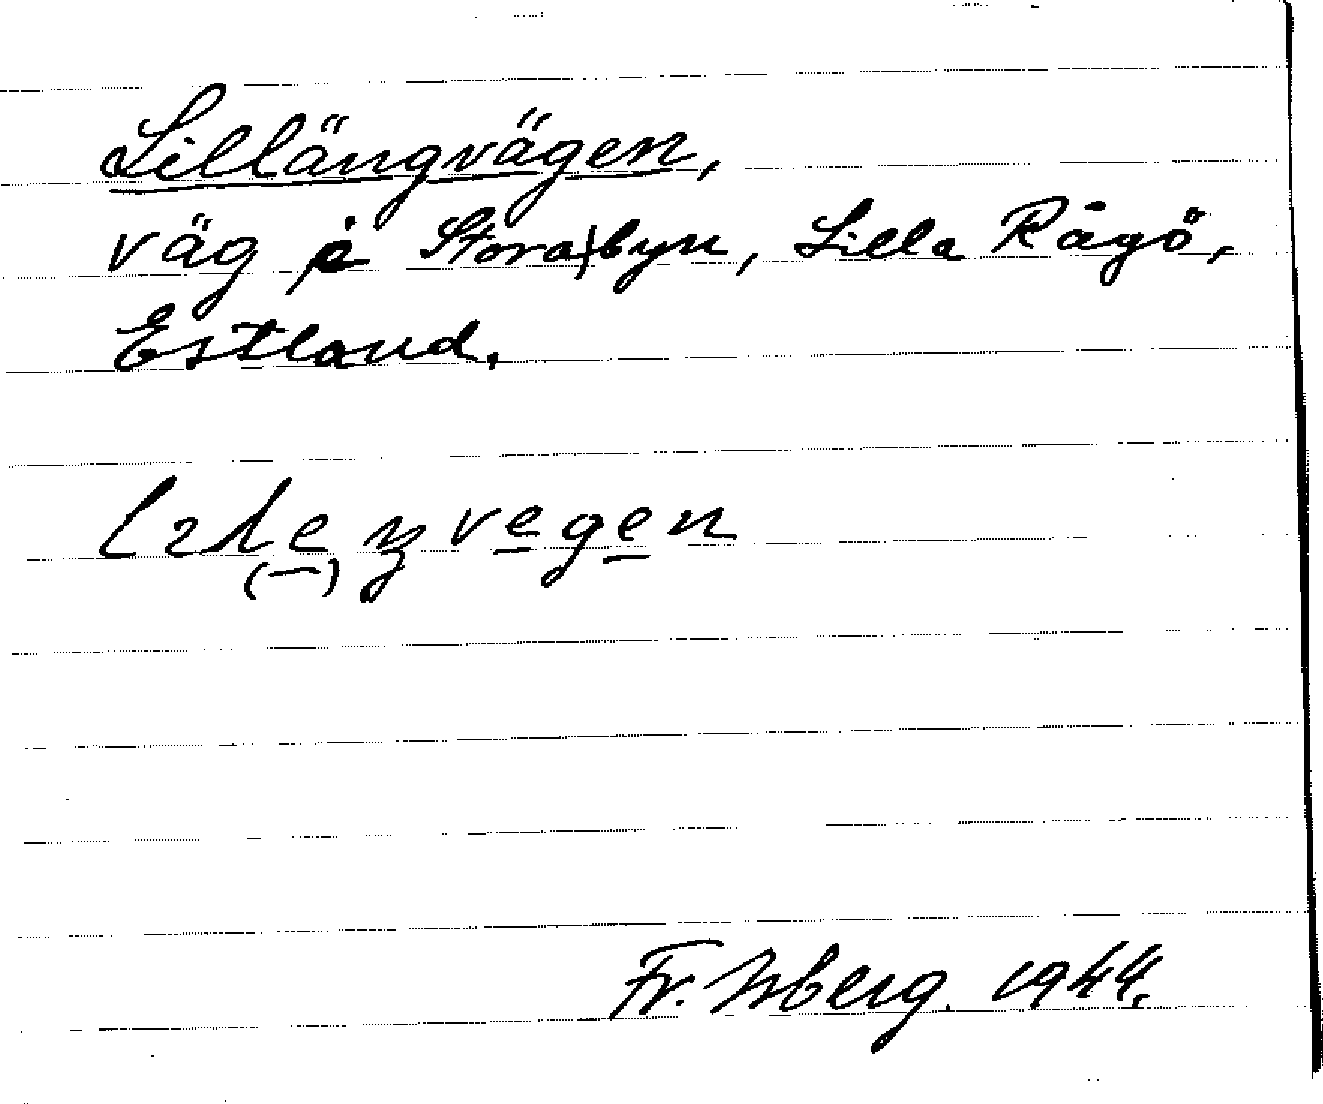 Lillängvägen,
väg å Stora|byn, Lilla Rågö,
Estland.
lıleŋvegen
(—)
Fr. Isberg. 1944.